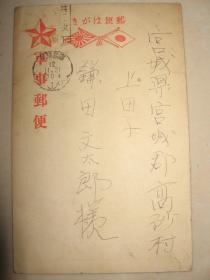 郵便はがき
軍事郵便
宮城縣宮城郡高砂村
上田子
鎌田文太郎様